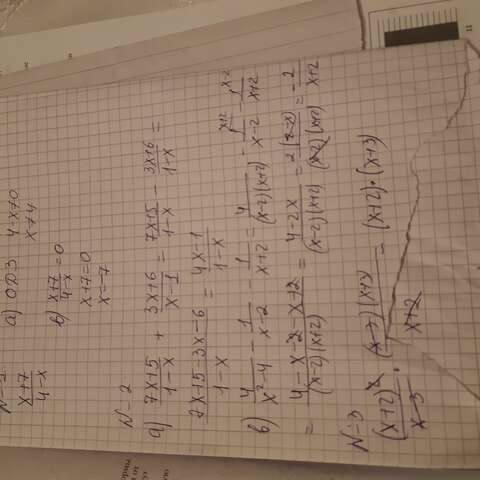 N-1
x+7/4-x
а) ОДЗ 4-x≠0
x≠4
в) x+7/4-x =0
x+7=0
x=-7
N-2
а) 7x+5/1-x + 3x+6/x-1 = 7x+5/1-x - 3x+6/1-x =
7x+5-3x-6/1-x = 4x-1/1-x
в) 4/x²-4 - 1/x-2 - 1/x+2 = 4/(x-2)(x+2) - 1/x-2 - 1/x+2
x+2 x-2
= 4-x-2-x+2/(x-2)(x+2) = 4-2x/(x-2)(x+2) = 2(2-x)/(x-2)(x+2) = - 2/x+2
N-3
(x+2)²/x-3 · (x-3)(x+3)/x+2 = (x+2)·(x+3)